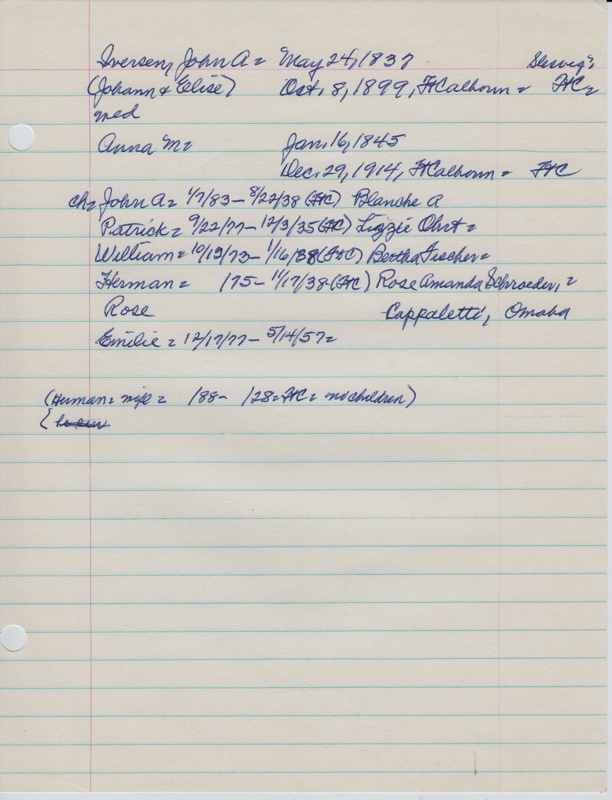 Iversen, John A = May 24, 1837 Slesvig =
(Johann & Elise) Oct. 8, 1899, FtCalhoun = FtC =
med
Anna M = Jan. 16, 1845
Dec. 29, 1914, FtCalhoun = FtC
ch = John A = 1/7/83 - 8/22/38 (FtC) Blanche A
Patrick = 9/22/77 - 12/3/35 (FtC) Lizzie Ohrt =
William = 10/19/73 - 1/16/38 (FtC) Bertha Fischer =
Herman = /75 - 11/17/38 (FtC) Rose Amanda Schroeder, =
Rose Cappaletti, Omaha
Emilie = 12/17/77 - 5/14/57 =
(Herman = wife = /88 - /28 = FtC = no children)
(